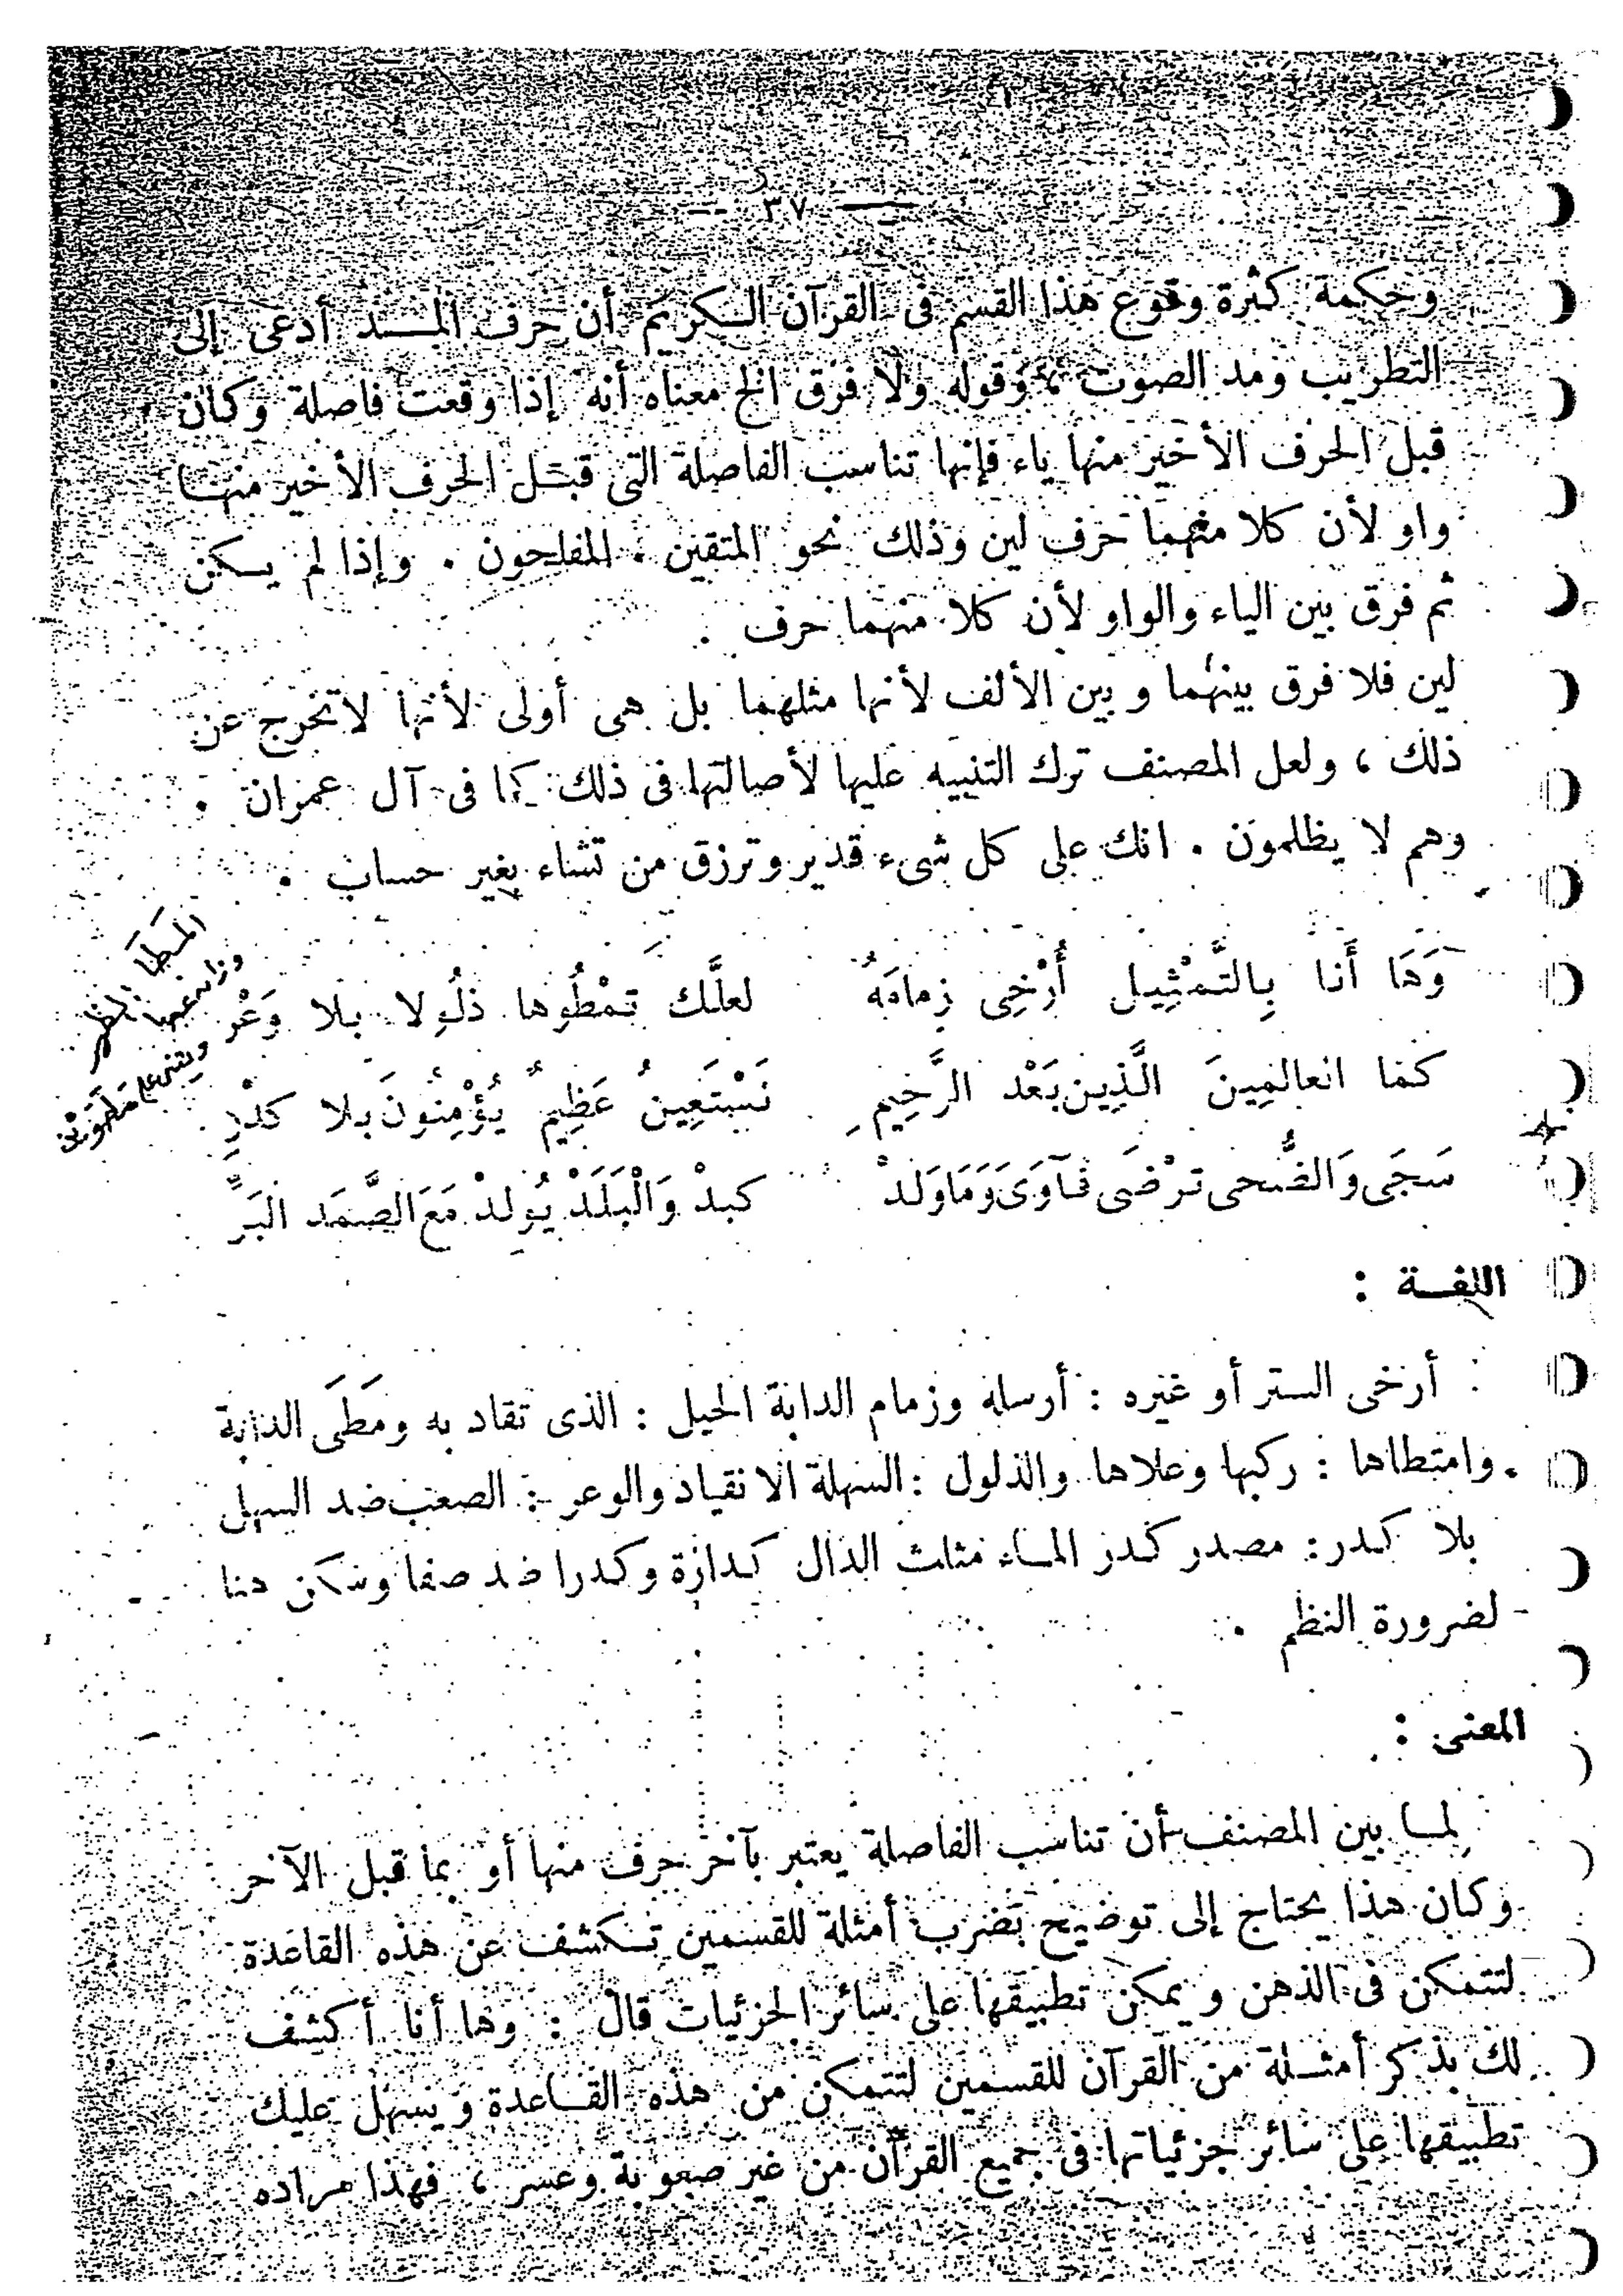 — ٣٧ —
وحكمة كثرة وقوع هذا القسم فى القرآن الكريم أن حرف المد أدعى إلى
التطريب ومد الصوت ، وقوله ولا فرق الخ معناه أنه إذا وقعت فاصلة وكان
قبل الحرف الأخير منها ياء فإنها تناسب الفاصلة التى قبل الحرف الأخير منها
واو لأن كلا منهما حرف لين وذلك نحو المتقين . المفلحون . وإذا لم يكن
ثم فرق بين الياء والواو لأن كلا منهما حرف .
لين فلا فرق بينهما وبين الألف لأنها مثلهما بل هى أولى لأنها لاتخرج عن
ذلك ، ولعل المصنف ترك التنبيه عليها لأصالتها فى ذلك كما فى آل عمران .
وهم لا يظلمون . انك على كل شىء قدير وترزق من تشاء بغير حساب .
وَهَا أَنا بِالتَّمْثِيل أُرْخِى زِمامَهُ لعلَّك تمْطُوها ذلُولا بلا وَعْر
كمَا العالمِينَ الَّذِين بَعْد الرَّحِيم نَسْتَعِينُ عَظِيمٌ يُؤْمِنُونَ بلا كدْرِ
سَجَى وَالضُّحى ترْضَى فآوَى وَمَا وَلدْ كبدْ وَالْبَلَدْ يُولدْ مَعَ الصَّمَد البَرِّ
اللغـة :
أرخى الستر أو غيره : أرسله وزمام الدابة الحبل : الذى تقاد به ومَطَى الدابة
وامتطاها : ركبها وعلاها والذلول : السهلة الانقياد والوعر : الصعب ضد السهل
بلا كدر : مصدر كدر الماء مثلث الدال كدارة وكدرا ضد صفا وسكن هنا
لضرورة النظم .
المعنى :
لما بين المصنف أن تناسب الفاصلة يعتبر بآخر حرف منها أو بما قبل الآخر
وكان هذا يحتاج إلى توضيح بضرب أمثلة للقسمين تكشف عن هذه القاعدة
لتتمكن فى الذهن ويمكن تطبيقها على سائر الجزئيات قال : وها أنا أكشف
لك بذكر أمثلة من القرآن للقسمين لتتمكن من هذه القاعدة ويسهل عليك
تطبيقها على سائر جزئياتها فى جميع القرآن من غير صعوبة وعسر ، فهذا مراده